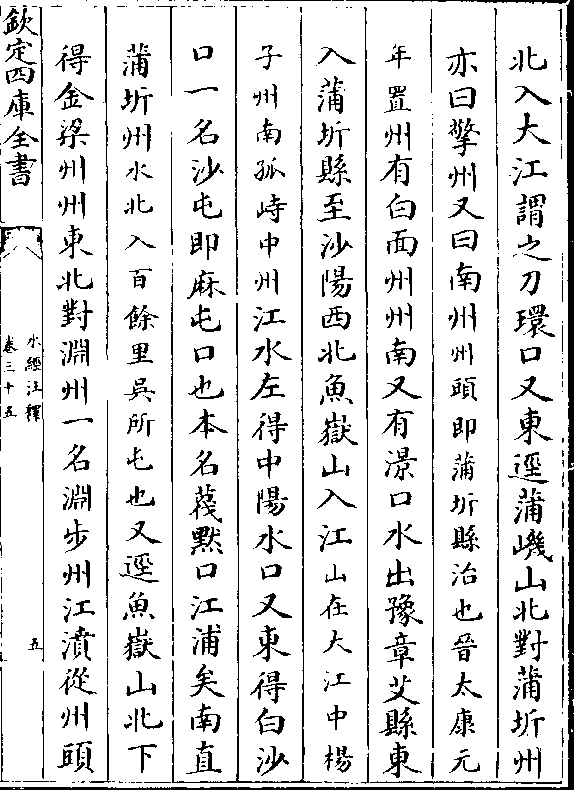 北入大江謂之刀環口又東逕蒲嶬山北對蒲圻州
亦曰擎州又曰南州州頭即蒲圻縣治也晉太康元
年置州有白面州州南又有澋口水出豫章艾縣東
入蒲圻縣至沙陽西北魚嶽山入江山在大江中楊
子州南孤峙中州江水左得中陽水口又東得白沙
口一名沙屯即麻屯口也本名蔑默口江浦矣南直
蒲圻州水北入百餘里吳所屯也又逕魚嶽山北下
得金梁州州東北對淵州一名淵步州江濆從州頭
欽定四庫全書
水經注釋
卷三十五
五